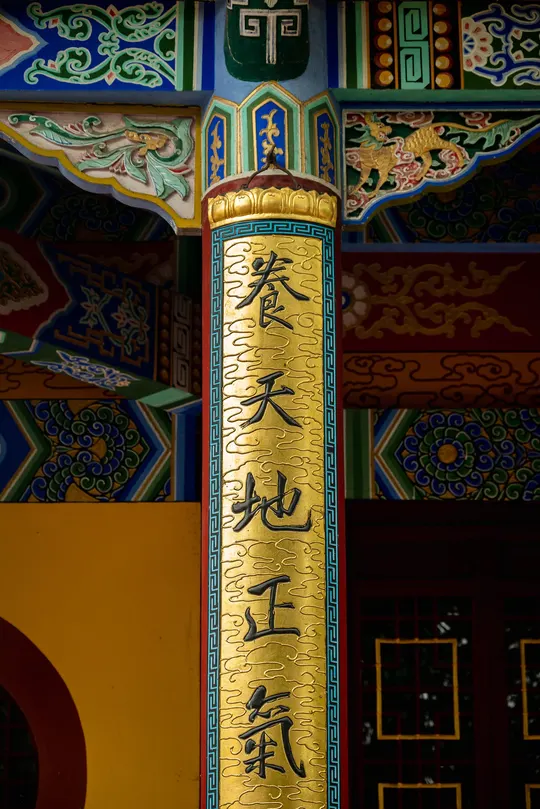 養天地正氣